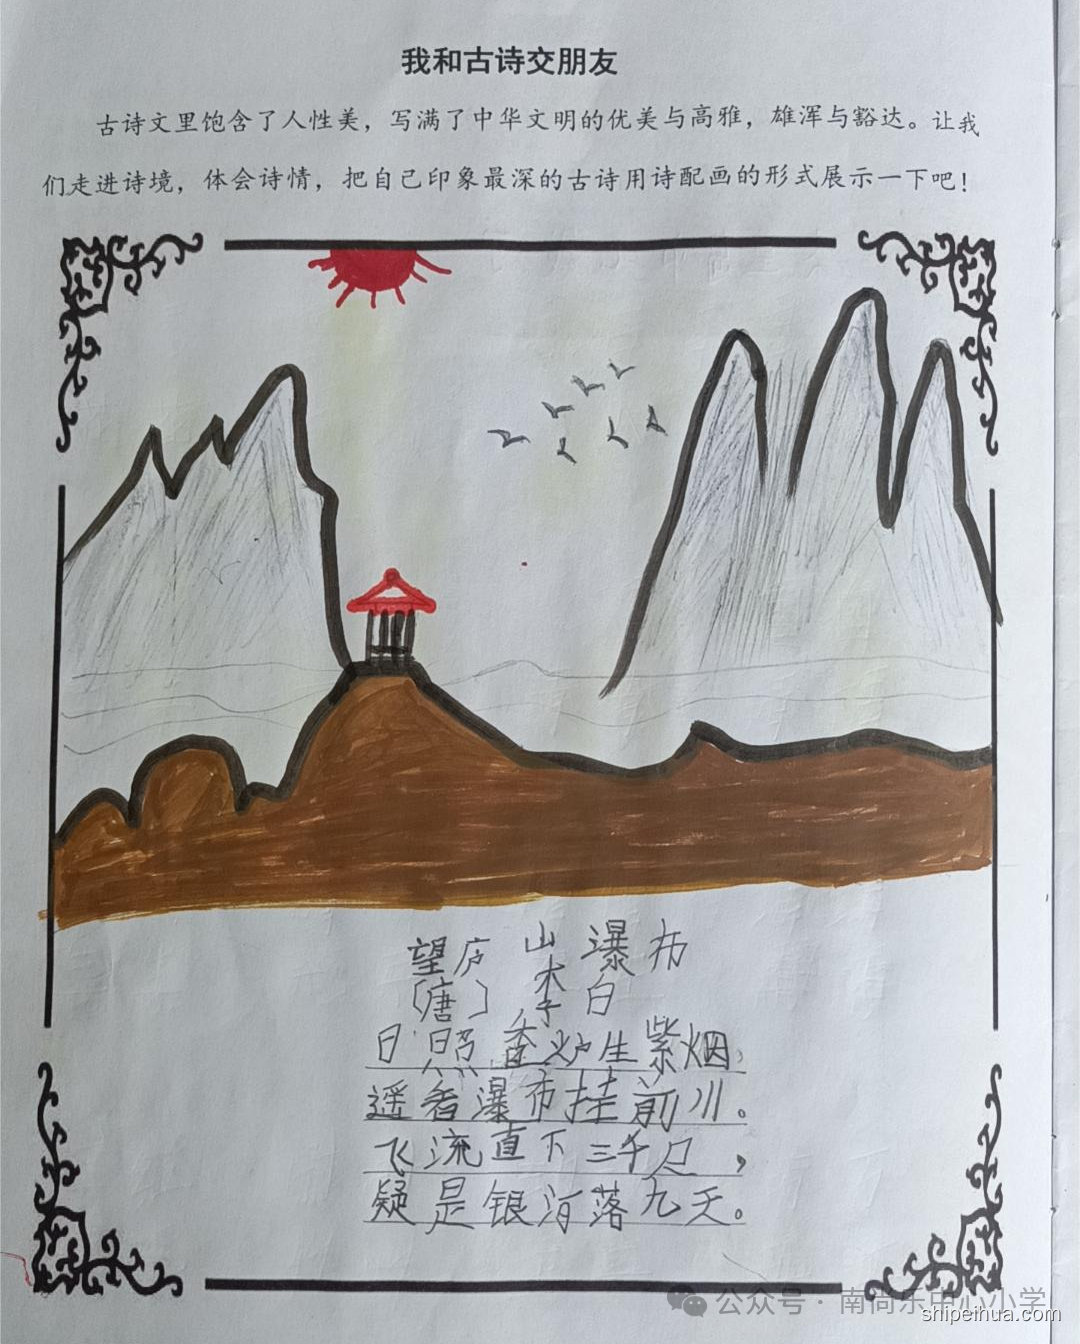 我和古诗交朋友
古诗文里饱含了人性美，写满了中华文明的优美与高雅，雄浑与豁达。让我
们走进诗境，体会诗情，把自己印象最深的古诗用诗配画的形式展示一下吧！
望庐山瀑布
〔唐〕李白
日照香炉生紫烟，
遥看瀑布挂前川。
飞流直下三千尺，
疑是银河落九天。
公众号·南尚乐中心小学
shipeihua.com